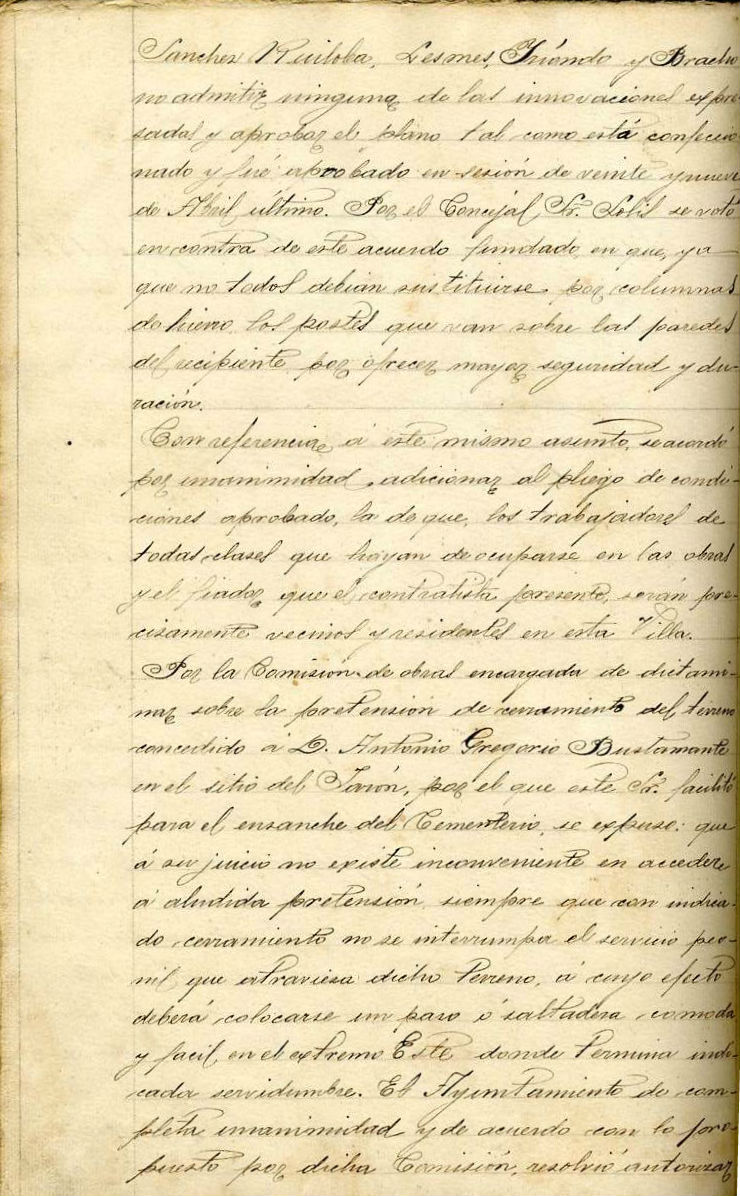 Sanchez Ruiloba, Lesmes, Iriondo y Bracho
no admitir ninguna de las innovaciones expre-
sadas y aprobar el plano tal como está confeccio
nado y fué aprobado en sesión de veinte y nueve
de Abril último. Por el Concejal Sr. Solis se votó
en contra de este acuerdo fundado, en que, ya
que no todos debian sustituirse por columnas
de hierro los postes que van sobre las paredes
del recipiente por ofrecer mayor seguridad y du-
ración.
Con referencia á este mismo asunto, se acordó
por unanimidad adicionar al pliego de condi-
ciones aprobado, la de que, los trabajadores de
todas clases que hayan de ocuparse en las obras
y el fiador que el contratista presente, serán pre-
cisamente vecinos y residentes en esta Villa.
Por la Comisión de obras encargada de dictami-
nar sobre la pretensión de cerramiento del terreno
concedido á D. Antonio Gregorio Bustamante
en el sitio del Tarón, por el que este Sr. facilitó
para el ensanche del Cementerio, se expuso: que
á su juicio no existe inconveniente en acceder
á aludida pretensión, siempre que con indica-
do cerramiento no se interrumpa el servicio peo-
nil que atraviesa dicho terreno, á cuyo efecto
deberá colocarse un paso ó saltadera comoda
y facil, en el extremo Este donde termina indi-
cada servidumbre. El Ayuntamiento de com-
pleta unanimidad y de acuerdo con lo pro-
puesto por dicha Comisión, resolvió autorizar